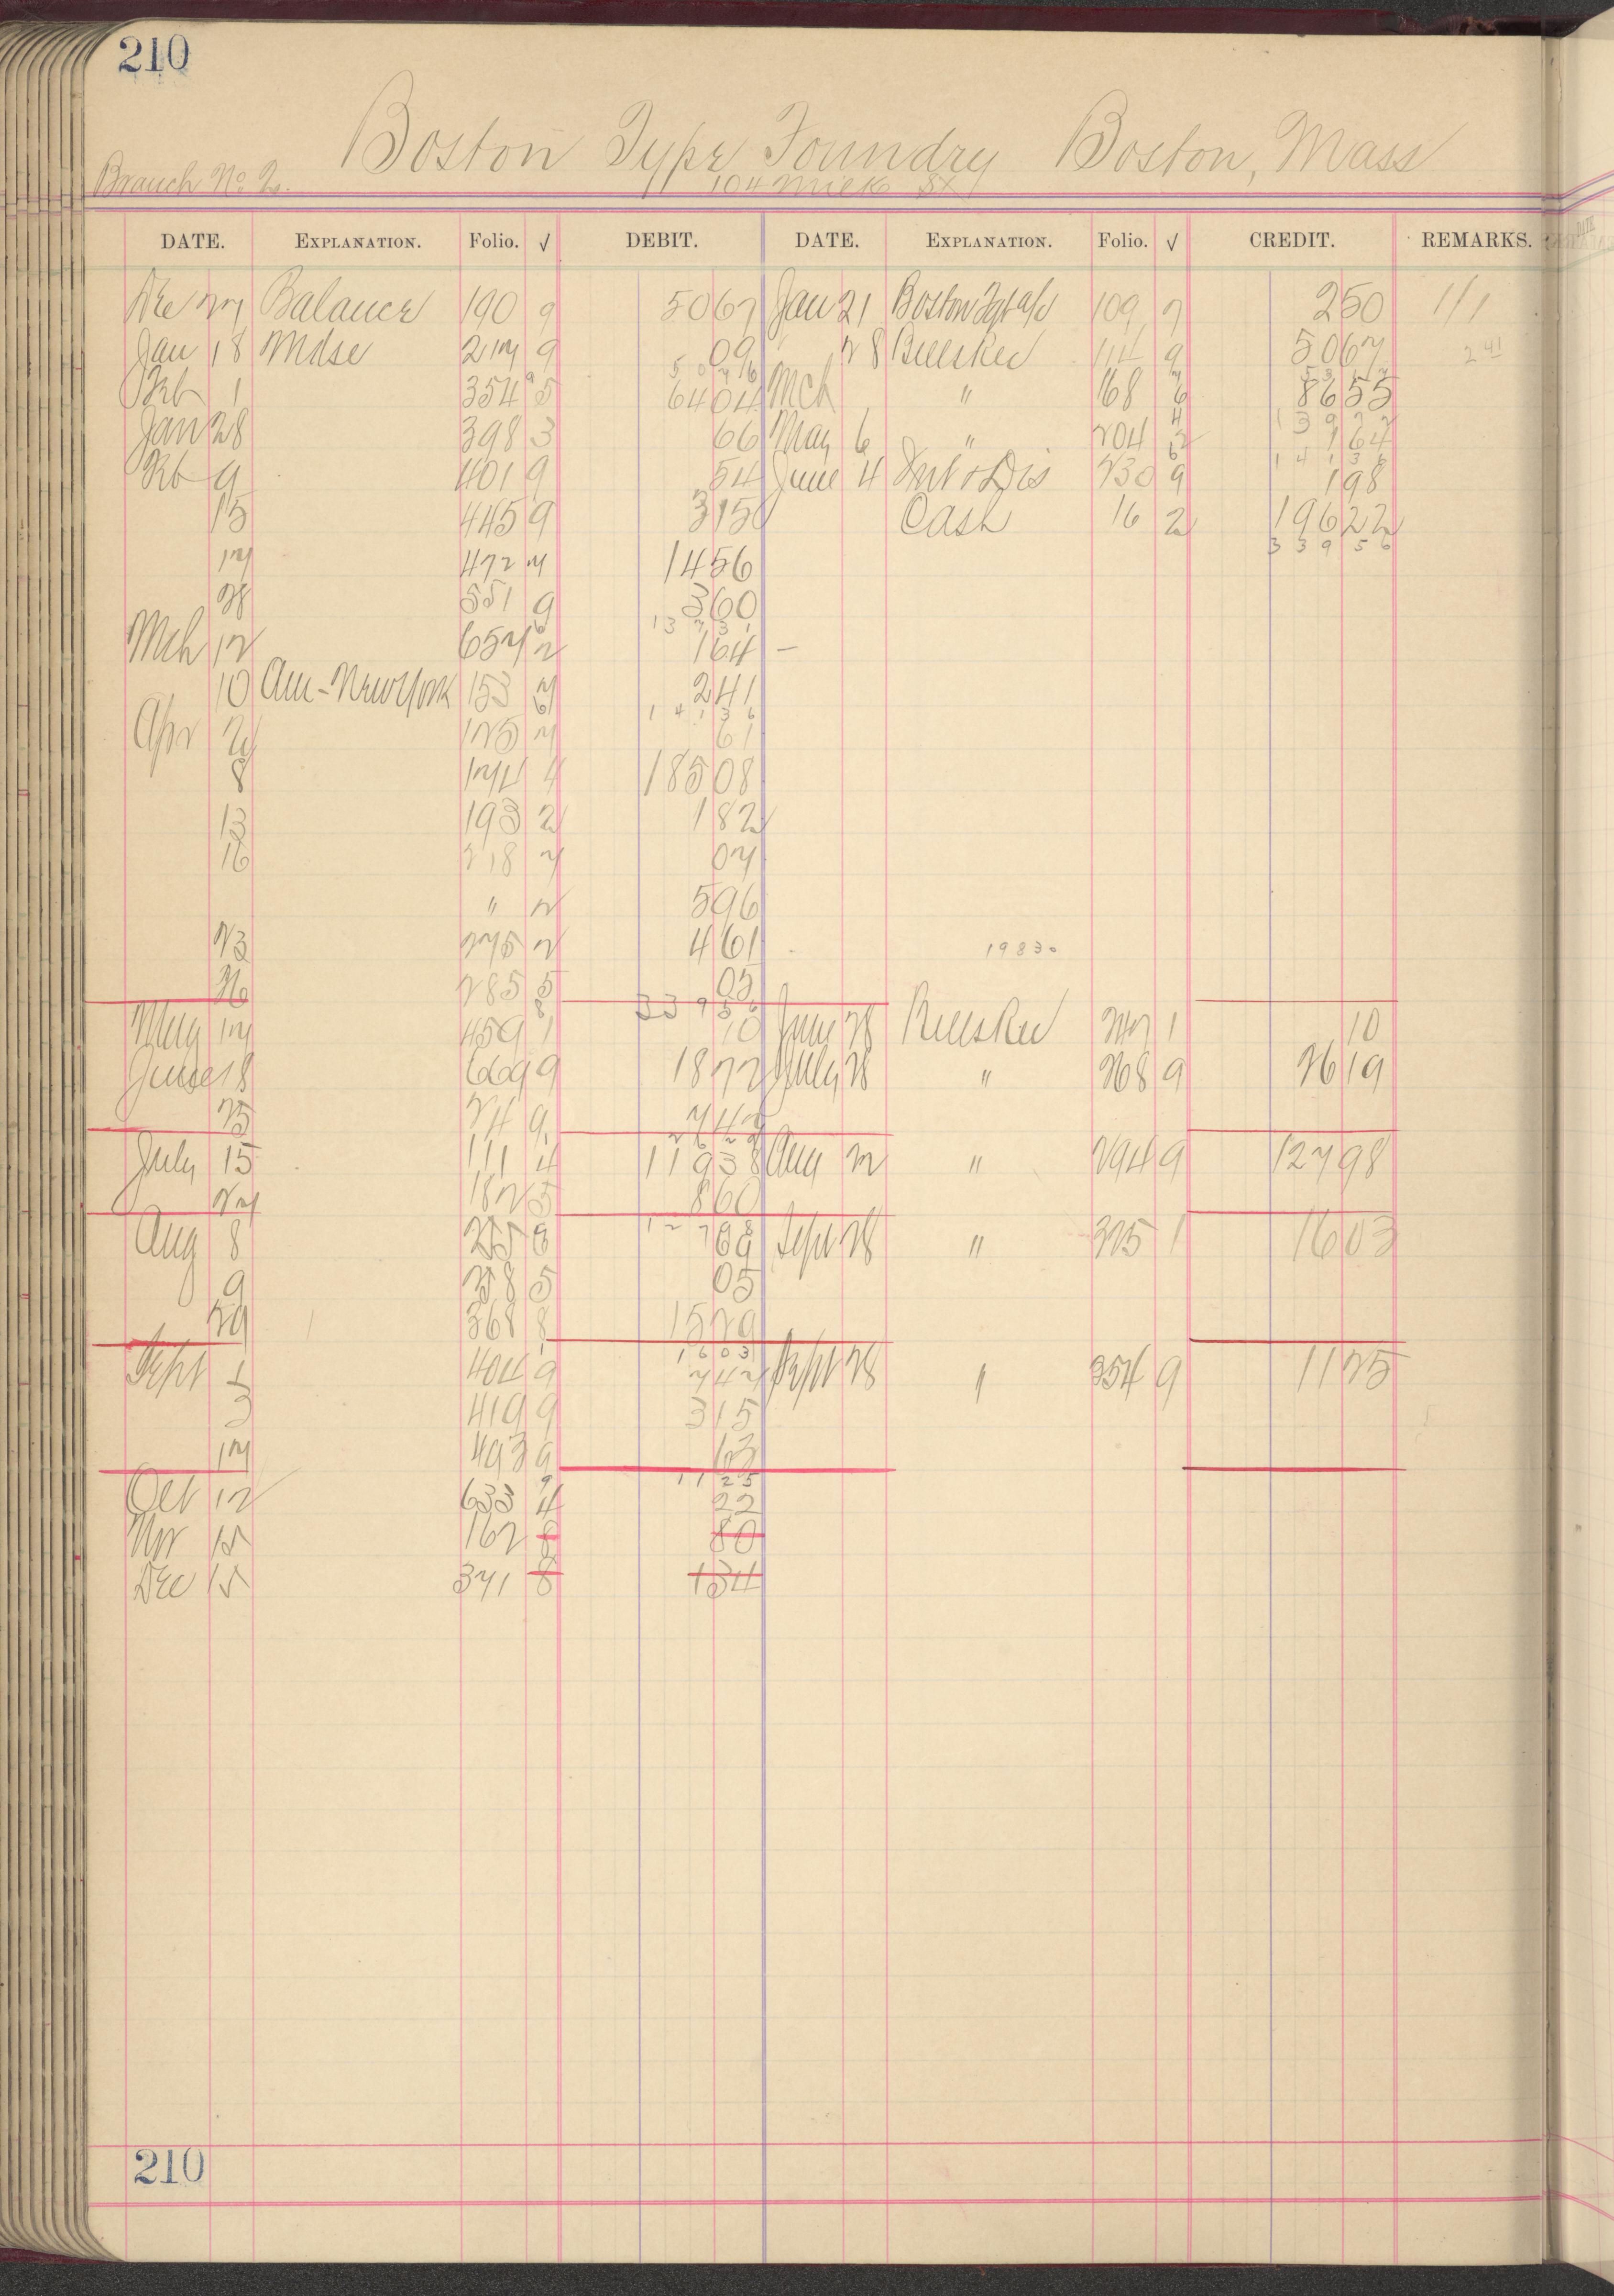 210
Boston Type Foundry Boston, Mass
Branch No 2. 104 Milk St
DATE. EXPLANATION. Folio. √ DEBIT. DATE. EXPLANATION. Folio. √ CREDIT. REMARKS.
Dec 27 Balance 190 9 5067 Jan 21 Boston Typ a/c 109 7 250 1/1
Jan 18 Mdse 217 9 09 28 114 9 5067 2 41
5076 5317
Feb 1 354 5 6404 Mch " 168 6 8655
13972
Jan 28 398 3 66 May 6 " 204 2 164
14136
Feb 9 401 9 54 June 4 Int & Dis 230 9 198
15 445 9 3150 Cash 16 2 19622
33956
17 472 7 1456
28 551 9 360
13731
Mch 12 657 2 164 –
10 Am-New York 153 7 241
14136
Apr 2 125 7 61
8 174 4 18508
13 193 2 182
16 218 7 07
" 2 596
23 275 2 461 19830
26 285 5 05
33956
May 17 459 1 10 June 28 227 1 10
June 18 669 9 1872 July 28 " 268 9 2619
25 24 9 747
2629
July 15 111 4 11938 Aug 22 " 294 9 12798
27 182 5 860
12798
Aug 8 69 Sept 28 " 325 1 1603
9 5 05
29 368 8 1529
1603
Sept 1 404 9 747 Sept 28 " 354 9 1125
3 419 9 315
17 493 9 63
1125
Oct 12 633 4 22
Nov 15 162 8 80
Dec 15 371 8 134
210